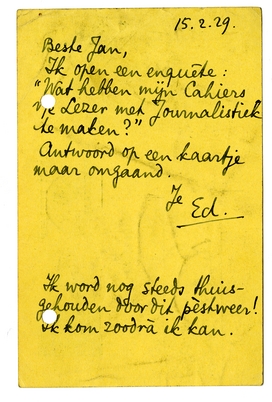 15.2.29.
Beste Jan,
Ik open een enquête:
"Wat hebben mijn Cahiers
v/e Lezer met Journalistiek
te maken?"
Antwoord op een kaartje
maar omgaand.
Je
Ed.
Ik word nog steeds thuis-
gehouden door dit pestweer!
Ik kom zoodrà ik kan.